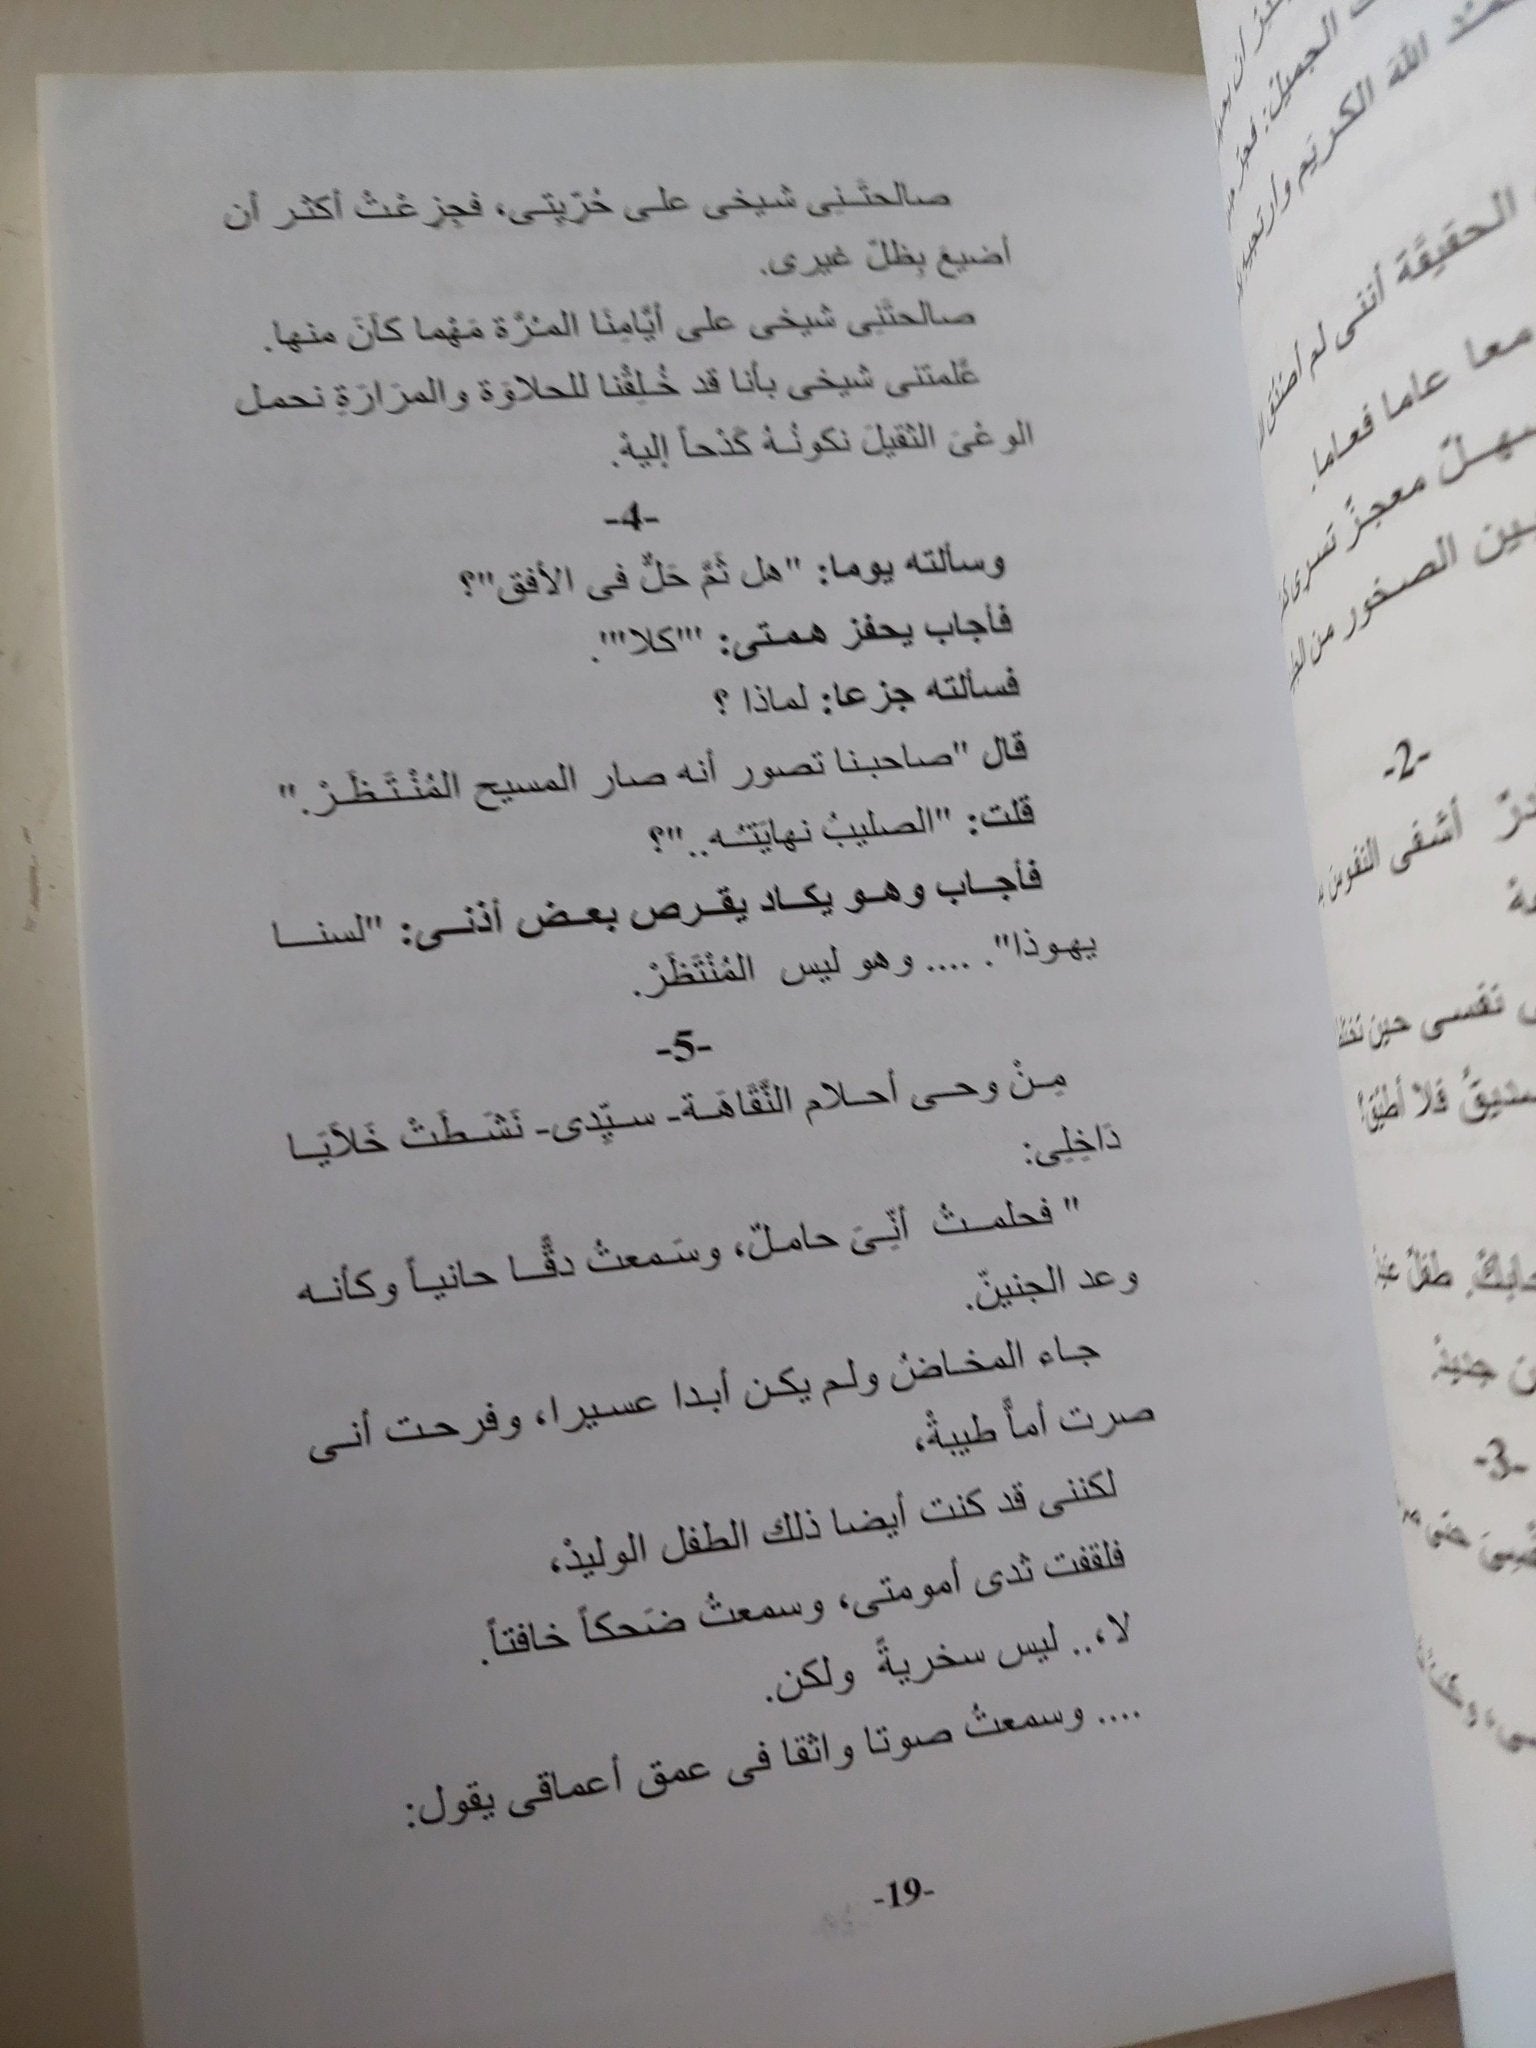 صالحتَّنِى شيخى على حُرّيتِى، فجزعْتُ أكثر أن
أضيعَ بِظلّ غيرى.
صالحتَّنِى شيخى على أيَّامِنَا المُرَّة مَهْما كانَ منها.
عَّلمتنى شيخى بأنا قد خُلِقْنا للحلاوَة والمرَارَةِ نحمل
الوعْىَ الثقيلَ نكونُهُ كَدْحاً إليهْ.
-4-
وسألته يوما: "هل ثَمَّ حَلٌّ فى الأفق"؟
فأجاب يحفز همتى: "'كلا'".
فسألته جزعا: لماذا ؟
قال "صاحبنا تصور أنه صار المسيح المُنْتَظَرْ."
قلت: "الصليبُ نهايَتُه.."؟
فأجاب وهو يكاد يقرص بعض أذنى: "لسنا
يهوذا". .... وهو ليس المُنْتَظَرْ.
-5-
مِنْ وحى أحلام النَّقَاهَة- سيّدى- نَشَطَتْ خَلاَيَا
دَاخِلِى:
" فحلمتُ أنِّىَ حاملٌ، وسَمعتُ دقًّا حانياً وكأنه
وعد الجنينْ.
جاء المخاضُ ولم يكن أبدا عسيرا، وفرحت أنى
صرت أماًّ طيبةْ،
لكننى قد كنت أيضا ذلك الطفل الوليدْ،
فلقفت ثدى أمومتى، وسمعتُ ضَحكاً خافتاً.
لا،.. ليس سخريةً ولكن.
.... وسمعتُ صوتا واثقا فى عمق أعماقى يقول:
-19-
الله الكريم
الحقيقة أننى لم
معا عاما فعاما.
معجزٌ تسرى
بين الصخور من
-2-
أشفى النفوس
نفسى حين
طفلٌ
-3-